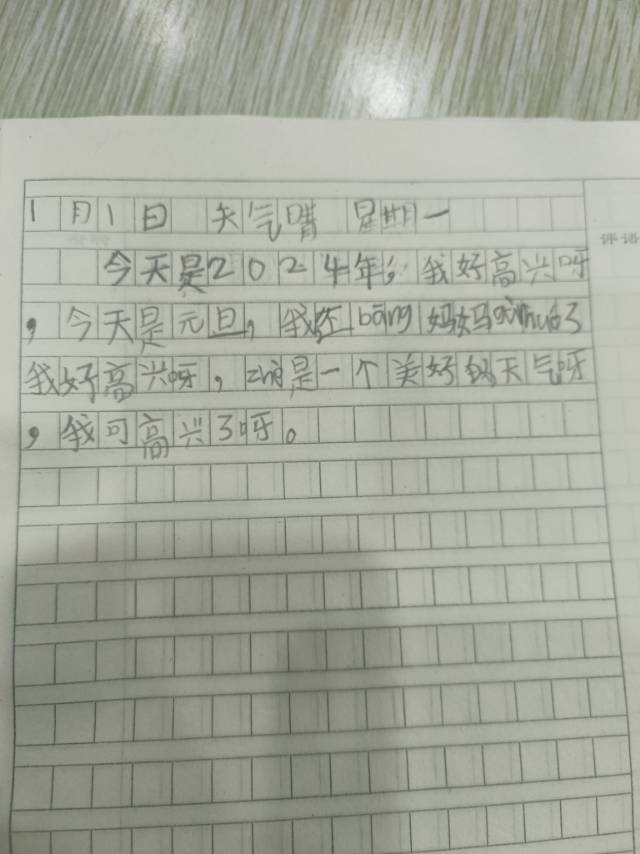 1月1日 天气晴 星期一
评语
今天是2024年，我好高兴呀
，今天是元旦，我还bāng妈妈 了
我好高兴呀，zhè是一个美好的天气呀
，我可高兴了呀。